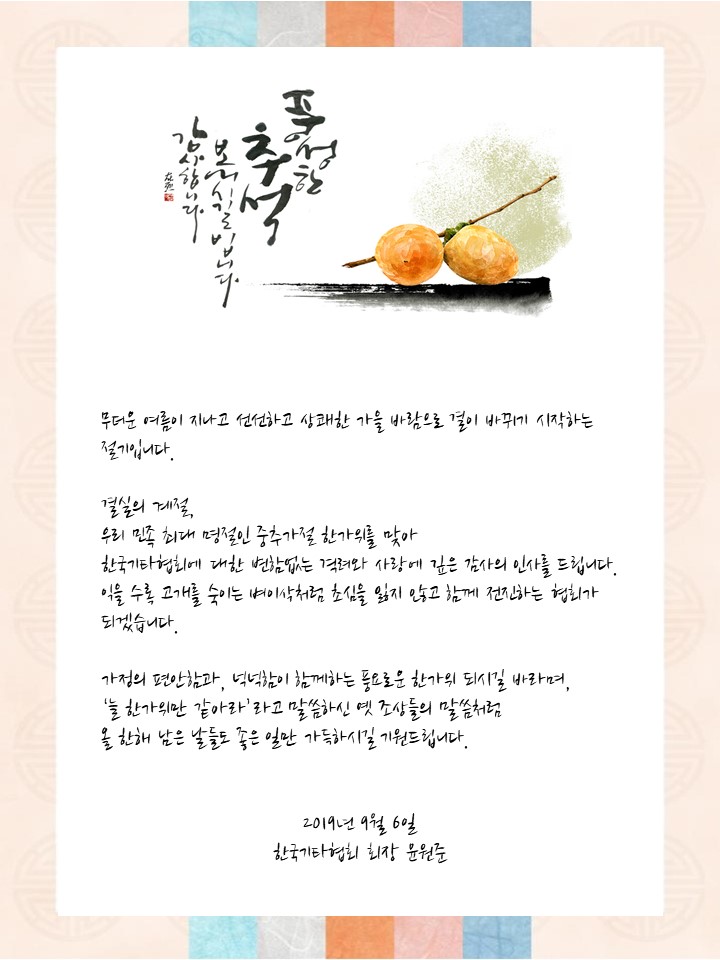 풍성한
추석
보내시길 빕니다.
감사합니다.
무더운 여름이 지나고 선선하고 상쾌한 가을 바람으로 결이 바뀌기 시작하는
절기입니다.
결실의 계절,
우리 민족 최대 명절인 중추가절 한가위를 맞아
한국기타협회에 대한 변함없는 격려와 사랑에 깊은 감사의 인사를 드립니다.
익을 수록 고개를 숙이는 벼이삭처럼 초심을 잃지 않고 함께 전진하는 협회가
되겠습니다.
가정의 편안함과, 넉넉함이 함께하는 풍요로운 한가위 되시길 바라며,
'늘 한가위만 같아라'라고 말씀하신 옛 조상들의 말씀처럼
올 한해 남은 날들도 좋은 일만 가득하시길 기원드립니다.
2019년 9월 6일
한국기타협회 회장 윤원준